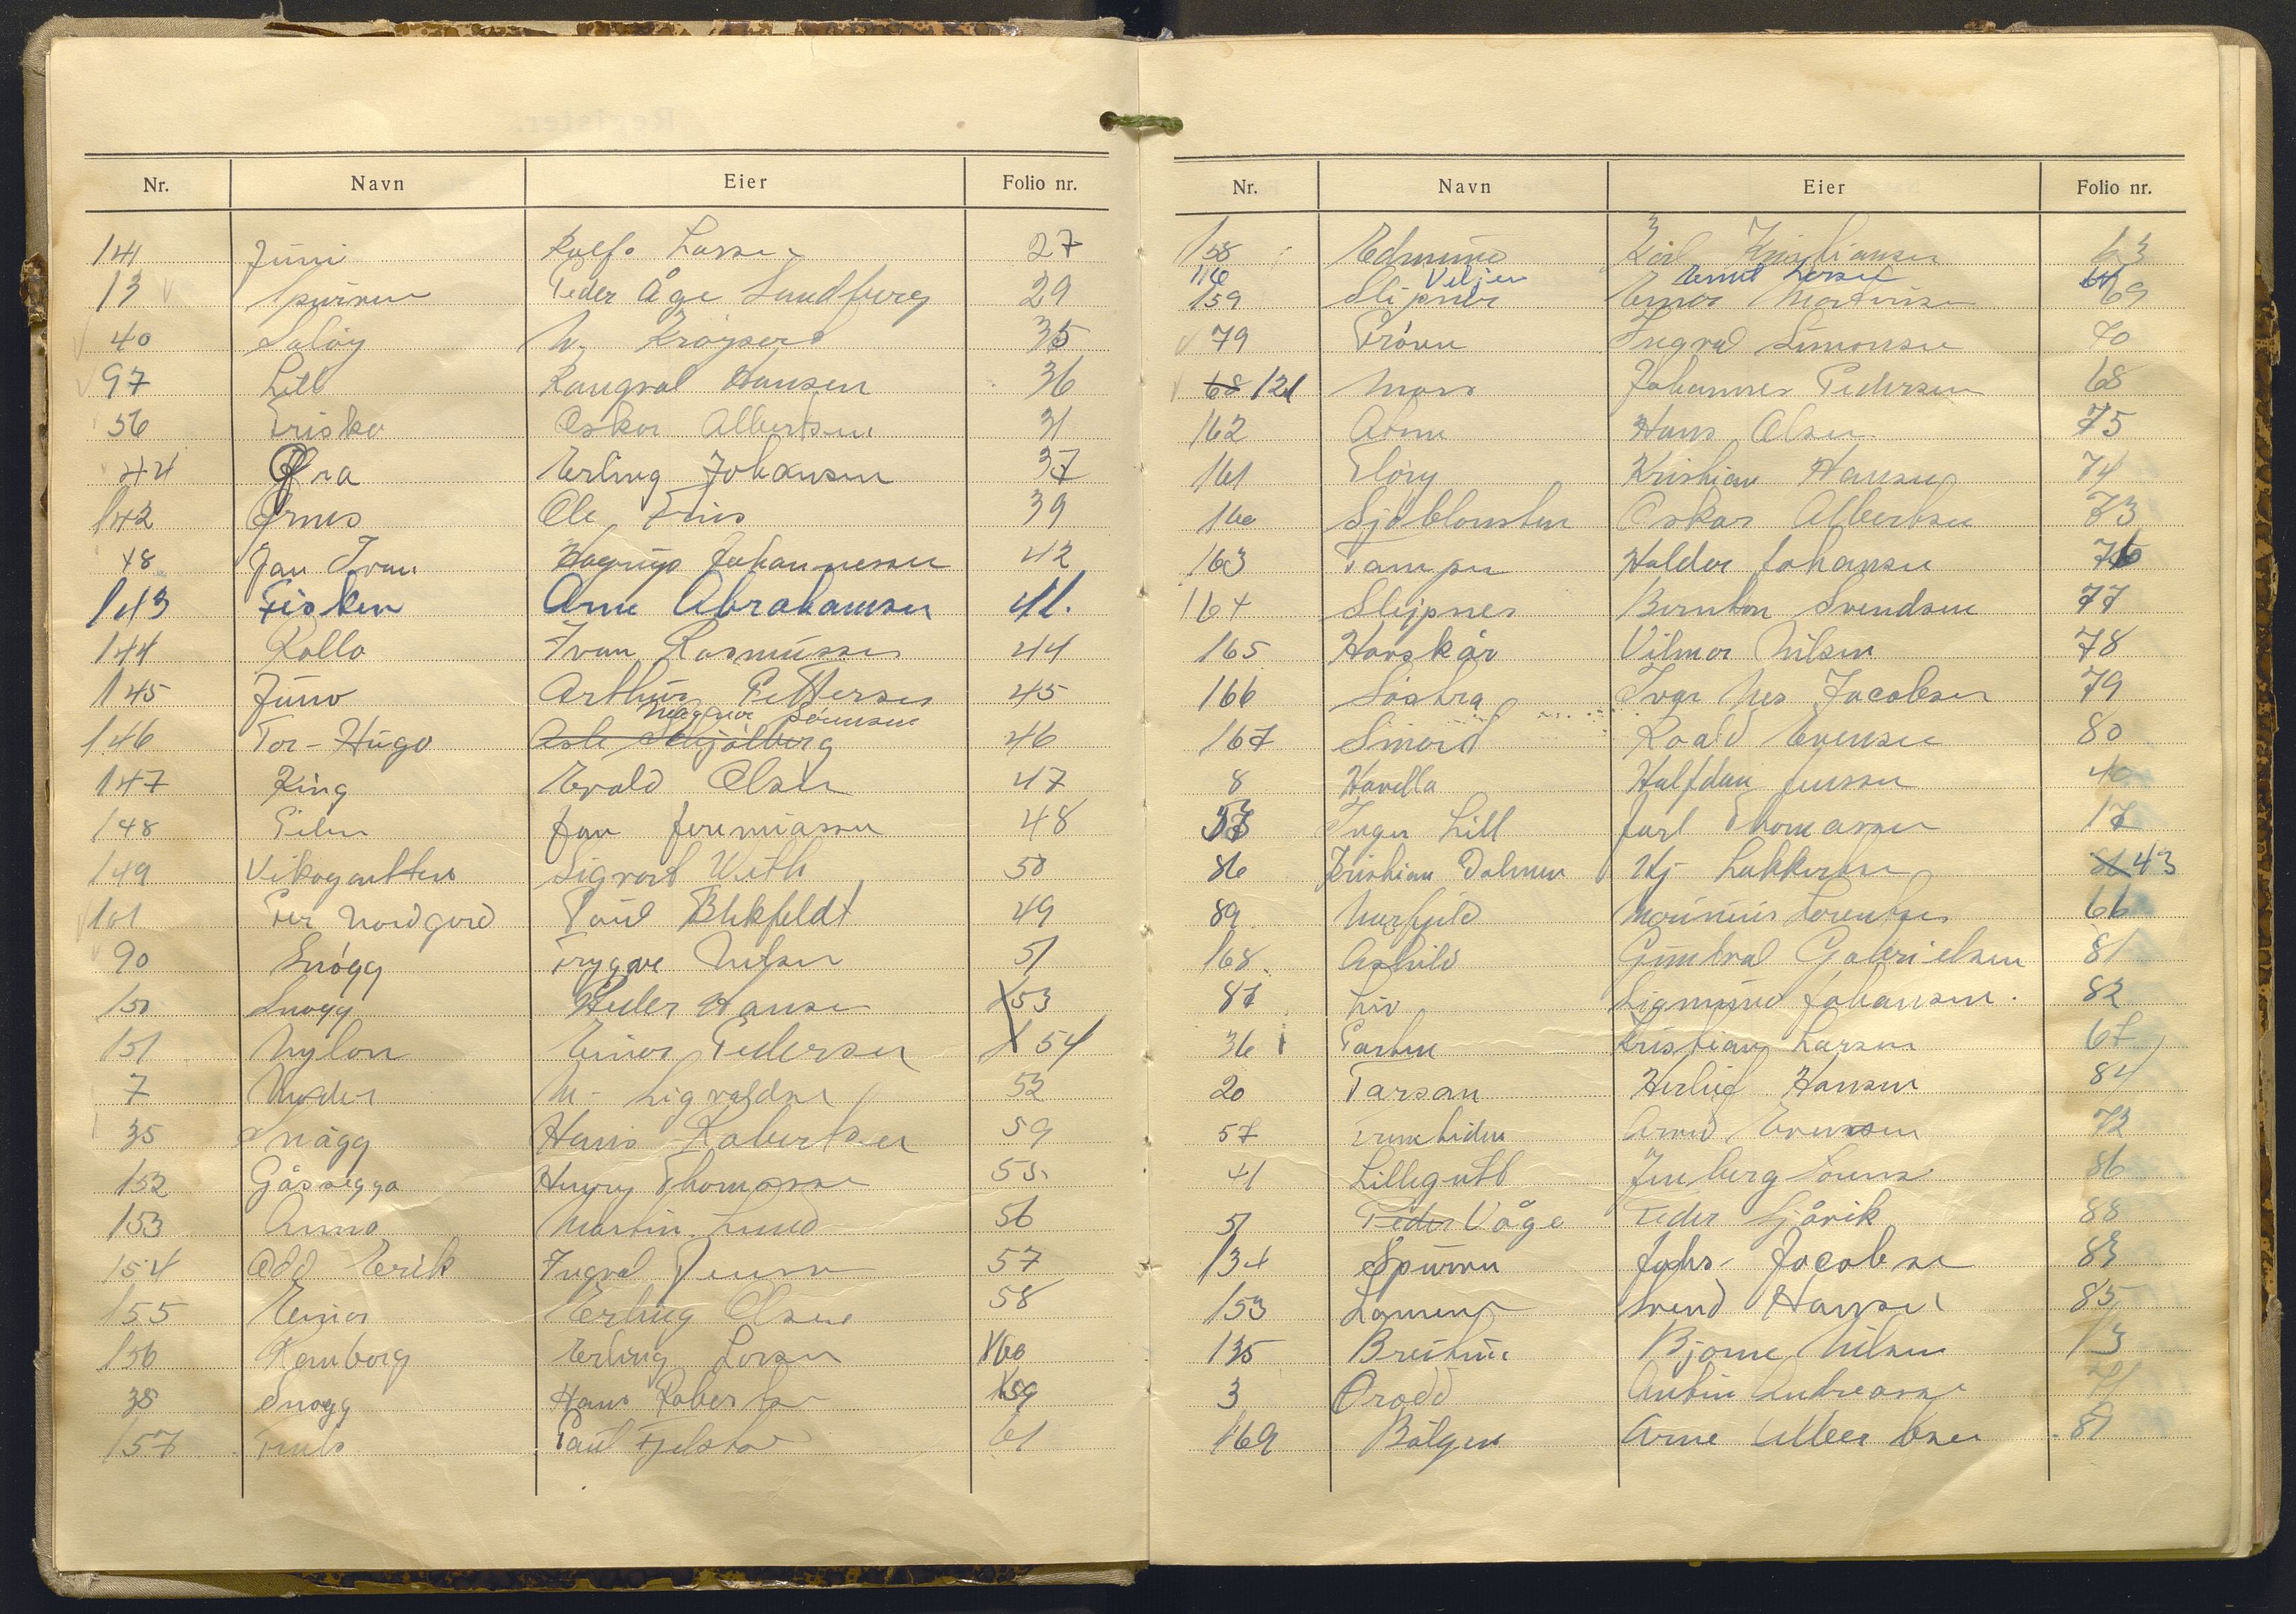 Nr. Navn Eier Folio nr.
141 Juni Rolfs Larsen 27
13 Spurven Peder Åge Sundfberg 29
40 Saløy 35
97 Lill Rangval Hansen 36
56 Friska Oskar Albertsen 31
44 Øra Erling Johansen 37
142 Ørnes Ole Friis 39
48 Jan Ivan Hagrup Johannessen 42
143 Fisken Arne Abrahamsen 41.
144 Rollo Ivan Rasmussen 44
145 Juno Arthur Pettersen 45
Magnar Sørensen
146 Tor-Hugo Asle Skjølberg 46
147 King Evald Olsen 47
148 Pilen Jan Jeremiassen 48
149 Vikagutten Sigvart With 50
101 Per Nordgård Paul Blikfeldt 49
90 Snøgg Trygve Nilsen 51
150 Snøgg Peder Hansen 53
151 Nylon Einar Pedersen 54
7 M. Sigvaldsen 52
35 Snøgg Hans Robertsen 59
152 Gåssegga Henry Thomassen 55
153 Anna Martin Lund 56
154 Odd Erik Ingval Jensen 57
155 Einar Erling Olsen 58
156 Ramborg Erling Larsen 60
38 Snøgg Hans Robertsen 59
157 Truls Paul Fjelstad 61
Nr. Navn Eier Folio nr.
158 Edmund Karl Kristiansen 63
116 Veljen Ernst Larsen
159 Slipner Einar Martinsen 69
79 Prøven Ingval Simonsen 70
68 121 Mars Johannes Pedersen 68
162 Hans Olsen 75
161 Fløry Kristian Hansen 74
160 Sjøblomsten Oskar Albertsen 73
163 Tampen Haldor Johansen 76
164 Sleipner Bernton Svendsen 77
165 Havskår Vilmar Nilsen 78
166 Søstra Ivar Nes Jacobsen 79
167 Smart Roald Evensen 80
8 Havella Halfdan Jensen 40
53 Inger Lill Jarl Thomassen 17
86 Kristian Dolmen Hj Lukkertsen 43
89 Nerfjeld Mauritius Lorentsen 66
168 Asbild Gundval Gabrielsen 81
87 Liv Sigmund Johansen. 82
36 Parten Kristian Larsen 67
20 Tarsan Herluf Hansen 84
57 Fremtiden Arvid Evensen 72
41 Lillegutt 86
51 Peder Våge Peder Sjåvik 88
134 Spurven Johs. Jacobsen 83
153 Svend Hansen 85
135 Bjarne Nilsen 13
3 Brodd Anton Andreassen 71
169 Bølgen Arne Albertsen 87